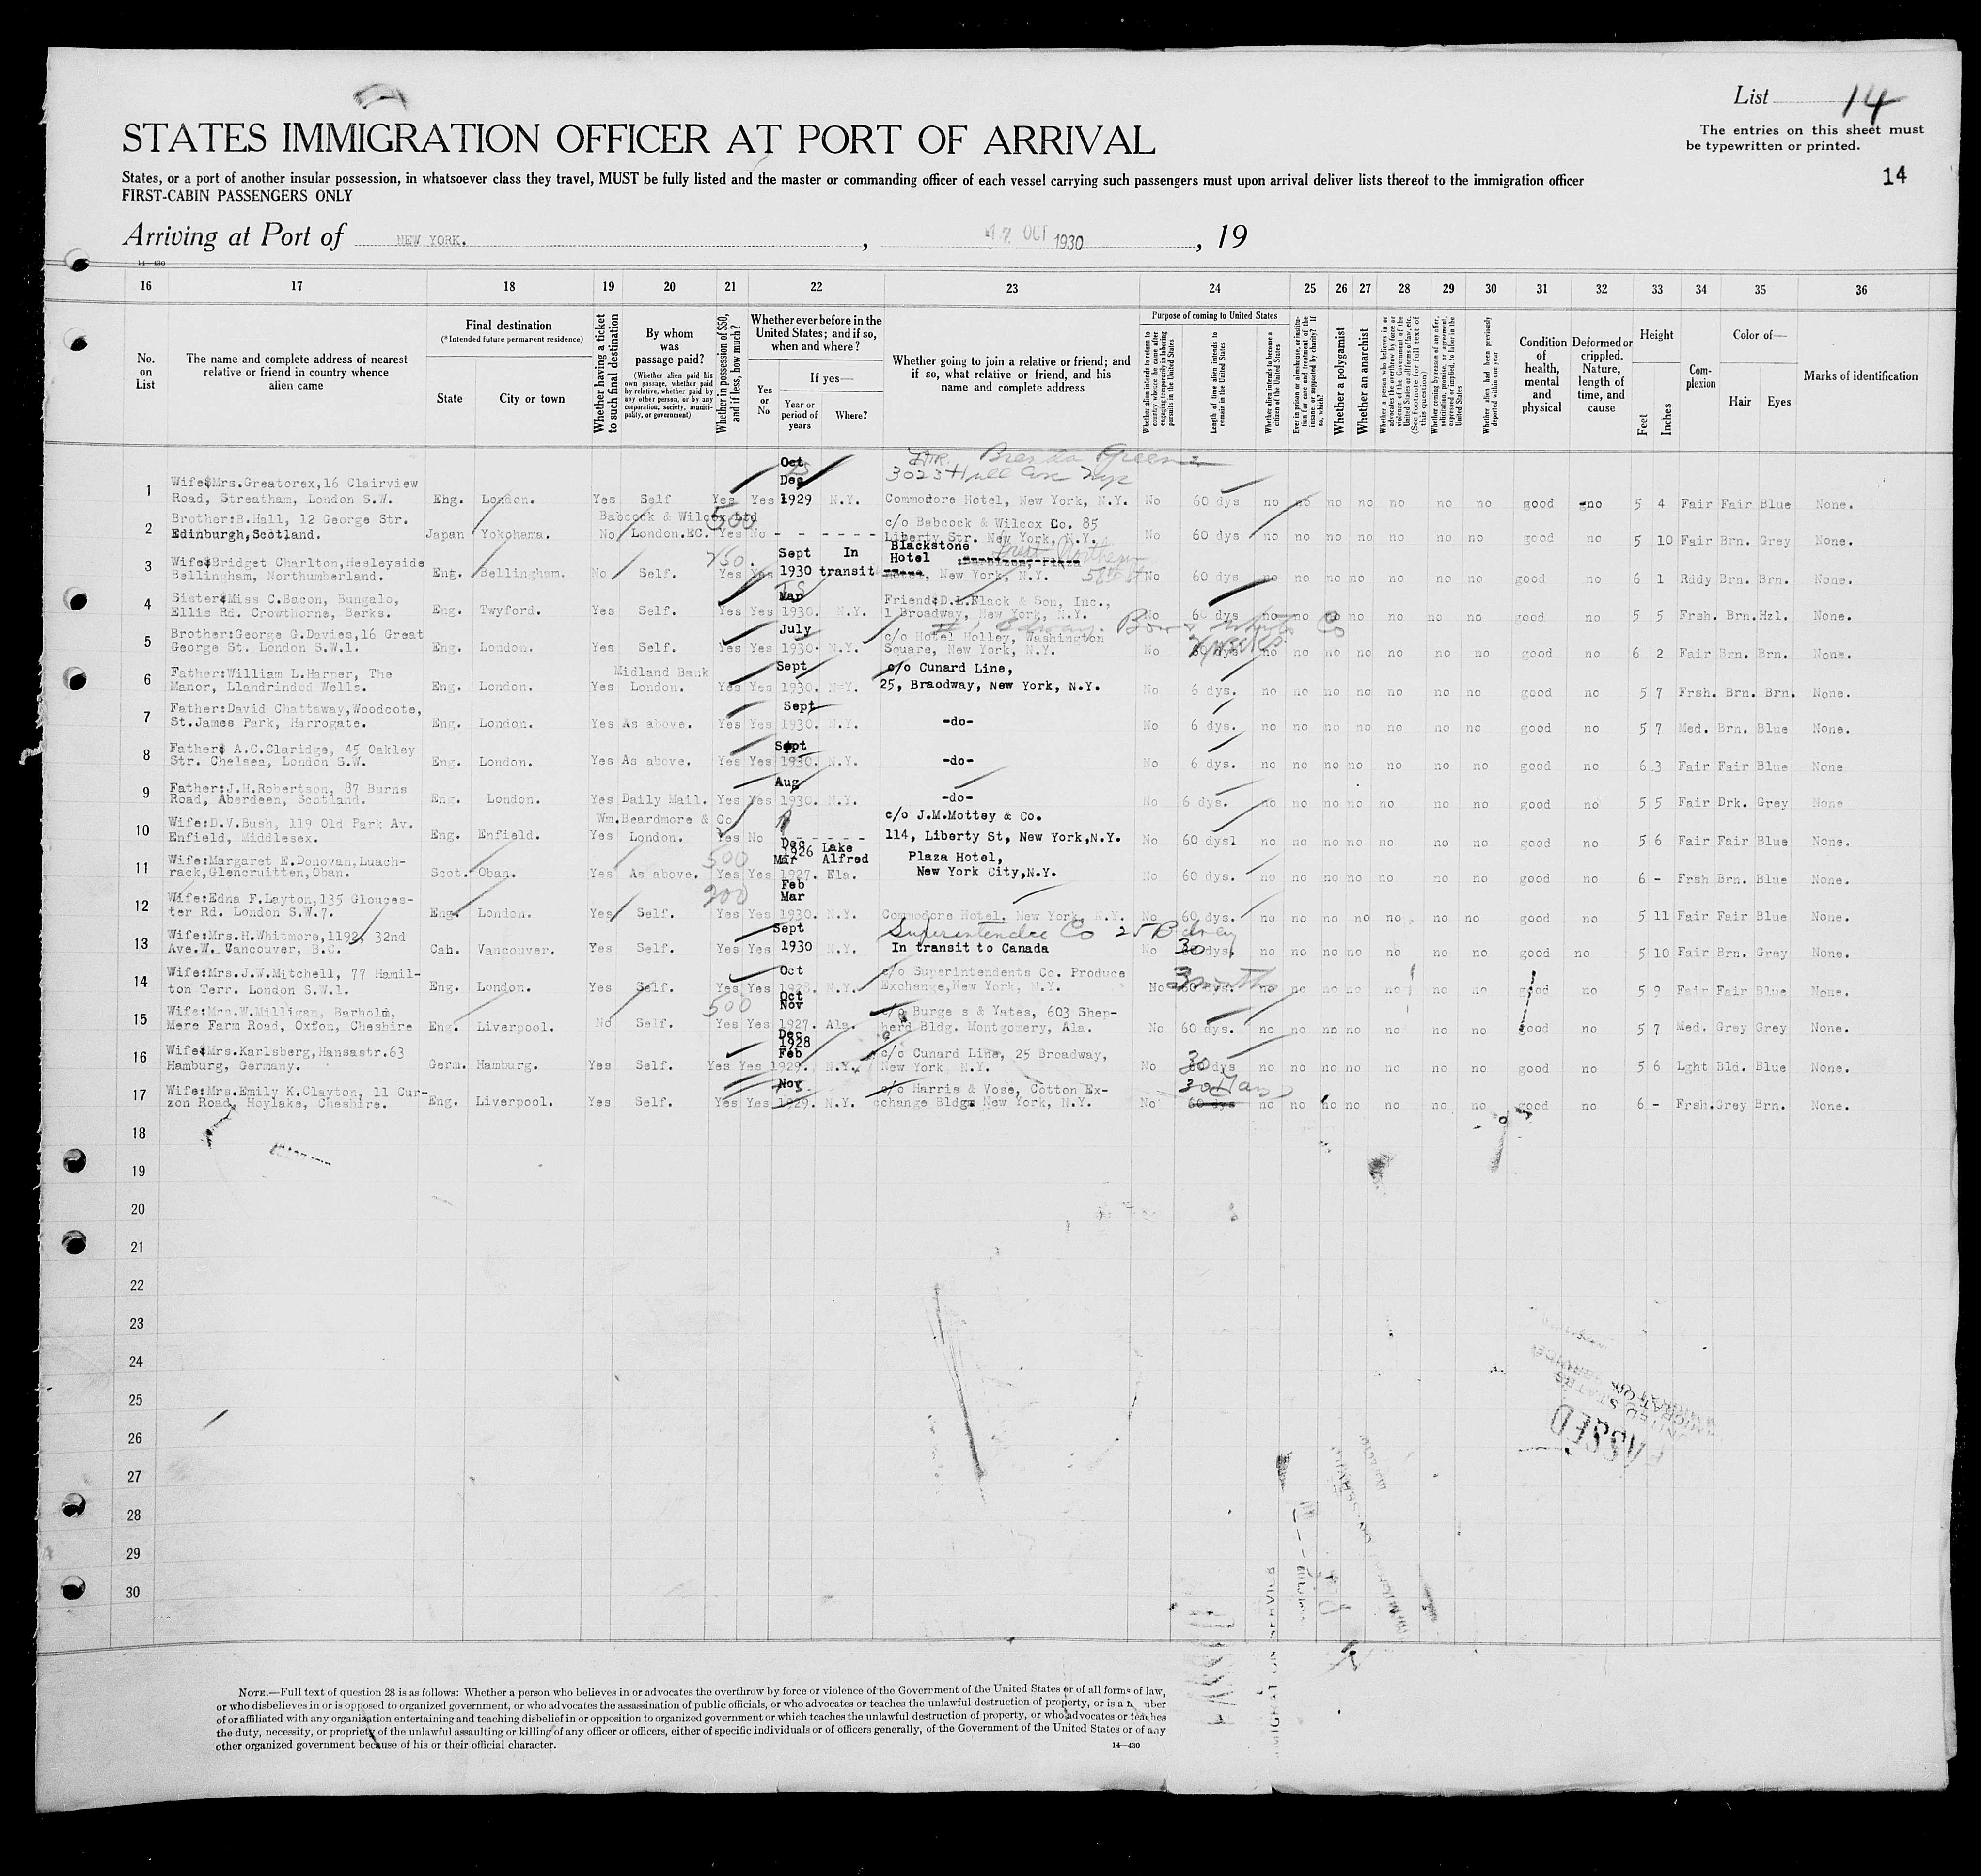 List 14
The entries on this sheet must
be typewritten or printed.
14
STATES IMMIGRATION OFFICER AT PORT OF ARRIVAL
States, or a port of another insular possession, in whatsoever class they travel, MUST be fully listed and the master or commanding officer of each vessel carrying such passengers must upon arrival deliver lists thereof to the immigration officer
FIRST-CABIN PASSENGERS ONLY
Arriving at Port of NEW YORK. , OCT 1930 , 19
14—430
16 17 18 19 20 21 22 23 24 25 26 27 28 29 30 31 32 33 34 35 36
No.
on
List
The name and complete address of nearest
relative or friend in country whence
alien came
Final destination
(*Intended future permanent residence)
State City or town
Whether having a ticket
to such final destination
By whom
was
passage paid?
(Whether alien paid his
own passage, whether paid
by relative, whether paid by
any other person, or by any
corporation, society, munici-
pality, or government)
Whether in possession of $50,
and if less, how much?
Whether ever before in the
United States; and if so,
when and where?
Yes
or
No
If yes—
Year or
period of
years
Where?
Whether going to join a relative or friend; and
if so, what relative or friend, and his
name and complete address
Purpose of coming to United States
Whether alien intends to return to
country whence he came after
engaging temporarily in laboring
pursuits in the United States
Length of time alien intends to
remain in the United States
Whether alien intends to become a
citizen of the United States
Ever in prison or almshouse, or institu-
tion for care and treatment of the
insane, or supported by charity? If
so, which?
Whether a polygamist
Whether an anarchist
Whether a person who believes in or
advocates the overthrow by force or
violence of the Government of the
United States or all forms of law, etc.
(See footnote for full text of
this question)
Whether coming by reason of any offer,
solicitation, promise, or agreement,
expressed or implied, to labor in the
United States
Whether alien had been previously
deported within one year
Condition
of
health,
mental
and
physical
Deformed or
crippled.
Nature,
length of
time, and
cause
Height
Feet Inches
Com-
plexion
Color of—
Hair Eyes
Marks of identification
Oct
Dec
3023 Hull Ave NYC
1 Wife:Mrs.Greatorex,16 Clairview
Road, Streatham, London S.W. Eng. London. Yes Self Yes Yes 1929 N.Y. Commodore Hotel, New York, N.Y. No 60 dys no no no no no no no good no 5 4 Fair Fair Blue None.
Babcock & Wilcox Ltd 500
2 Brother:B.Hall, 12 George Str.
Edinburgh,Scotland. Japan Yokohama. No London.EC. Yes No - - - - - - c/o Babcock & Wilcox Co. 85
Liberty Str. New York, N.Y. No 60 dys no no no no no no no good no 5 10 Fair Brn. Grey None.
750.
3 Wife:Bridget Charlton,Hesleyside
Bellingham, Northumberland. Eng. Bellingham. No Self. Yes Yes Sept
1930 In
transit Blackstone
Hotel Barbizon, Plaza
Hotel, New York, N.Y. 58th St No 60 dys no no no no no no no good no 6 1 Rddy Brn. Brn. None.
4 Sister:Miss C.Bacon, Bungalo,
Ellis Rd. Crowthorne, Berks. Eng. Twyford. Yes Self. Yes Yes Mar
1930. N.Y. Friend:D.L.Flack & Son, Inc.,
1 Broadway, New York, N.Y. No 60 dys no no no no no no no good no 5 5 Frsh. Brn. Hzl. None.
5 Brother:George G.Davies,16 Great
George St. London S.W.1. Eng. London. Yes Self. Yes Yes July
1930. N.Y. c/o Hotel Holley, Washington
Square, New York, N.Y. No no no no no no no no good no 6 2 Fair Brn. Brn. None.
6 Father:William L.Harper, The
Manor, Llandrindod Wells. Eng. London. Yes Midland Bank
London. Yes Yes Sept
1930. N.Y. c/o Cunard Line,
25, Braodway, New York, N.Y. No 6 dys. no no no no no no no good no 5 7 Frsh. Brn. Brn. None.
7 Father:David Chattaway,Woodcote,
St.James Park, Harrogate. Eng. London. Yes As above. Yes Yes Sept
1930. N.Y. -do- No 6 dys. no no no no no no no good no 5 7 Med. Brn. Blue None.
8 Father: A.C.Claridge, 45 Oakley
Str. Chelsea, London S.W. Eng. London. Yes As above. Yes Yes Sept
1930. N.Y. -do- No 6 dys. no no no no no no no good no 6 3 Fair Fair Blue None
9 Father:J.H.Robertson, 87 Burns
Road, Aberdeen, Scotland. Eng. London. Yes Daily Mail. Yes Yes Aug
1930. N.Y. -do- No 6 dys. no no no no no no no good no 5 5 Fair Drk. Grey None
10 Wife:D.V.Bush, 119 Old Park Av.
Enfield, Middlesex. Eng. Enfield. Yes Wm.Beardmore & Co
London. Yes No - - - - - - c/o J.M.Mottey & Co.
114, Liberty St, New York,N.Y. No 60 dysl no no no no no no no good no 5 6 Fair Fair Blue None.
500
11 Wife:Margaret E.Donovan,Luach-
rack,Glencruitten,Oban. Scot. Oban. Yes As above. Yes Yes Dec
1926
Mar
1927. Lake
Alfred
Fla. Plaza Hotel,
New York City,N.Y. No 60 dys. no no no no no no no good no 6 - Frsh Brn. Blue None.
200
12 Wife:Edna F.Layton,135 Glouces-
ter Rd. London S.W.7. Eng. London. Yes Self. Yes Yes Feb
Mar
1930. N.Y. Commodore Hotel, New York, N.Y. No 60 dys. no no no no no no no good no 5 11 Fair Fair Blue None.
Superintendee Co 25 Bdway
13 Wife:Mrs.H.Whitmore,1192, 32nd
Ave.W. Vancouver, B.C. Cah. Vancouver. Yes Self. Yes Yes Sept
1930 N.Y. In transit to Canada No 30 dys. no no no no no no no good no 5 10 Fair Brn. Grey None.
14 Wife:Mrs.J.W.Mitchell, 77 Hamil-
ton Terr. London S.W.1. Eng. London. Yes Self. Yes Yes Oct
1928. N.Y. c/o Superintendents Co. Produce
Exchange,New York, N.Y. No 3 months 60 dys. no no no no no no no good no 5 9 Fair Fair Blue None.
500
15 Wife:Mrs.W.Milligan, Barholm,
Mere Farm Road, Oxton, Cheshire Eng. Liverpool. No Self. Yes Yes Oct
Nov
1927. Ala. c/o Burge s & Yates, 603 Shep-
herd Bldg. Montgomery, Ala. No 60 dys. no no no no no no no good no 5 7 Med. Grey Grey None.
16 Wife:Mrs.Karlsberg,Hansastr.63
Hamburg, Germany. Germ. Hamburg. Yes Self. Yes Yes Dec
1928
Feb
1929. N.Y. c/o Cunard Line, 25 Broadway,
New York, N.Y. No 30 dys no no no no no no no good no 5 6 Lght Bld. Blue None.
17 Wife:Mrs.Emily K.Clayton, 11 Cur-
zon Road, Hoylake, Cheshire. Eng. Liverpool. Yes Self. Yes Yes Nov.
1929. N.Y. c/o Harris & Vose, Cotton Ex-
change Bldg. New York, N.Y. No 30 Days 60 dys no no no no no no no good no 6 - Frsh. Grey Brn. None.
18
19
20
21
22
23
24
25
26
27
28
29
30
PASSED
NOTE.—Full text of question 28 is as follows: Whether a person who believes in or advocates the overthrow by force or violence of the Government of the United States or of all forms of law,
or who disbelieves in or is opposed to organized government, or who advocates the assassination of public officials, or who advocates or teaches the unlawful destruction of property, or is a member
of or affiliated with any organization entertaining and teaching disbelief in or opposition to organized government or which teaches the unlawful destruction of property, or who advocates or teaches
the duty, necessity, or propriety of the unlawful assaulting or killing of any officer or officers, either of specific individuals or of officers generally, of the Government of the United States or of any
other organized government because of his or their official character.
14—430